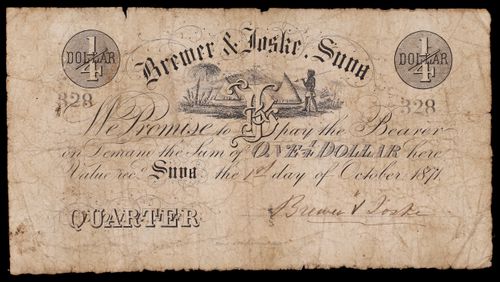 1/4 DOLLAR
1/4 DOLLAR
Brewer & Joske, Suva
328
328
We Promise to pay the Bearer
on Demand the Sum of ONE 1/4 DOLLAR here
Value rec. Suva the 1st day of October 1871.
QUARTER
Brewer & Joske